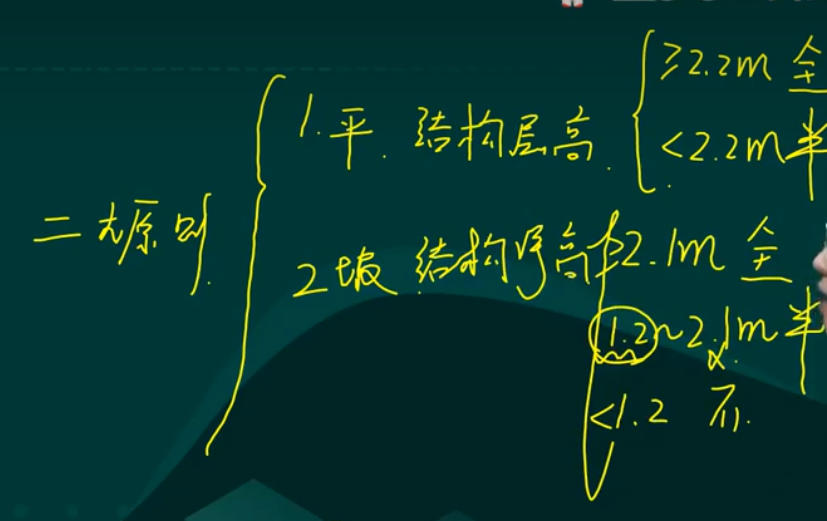 二大原则
1. 平. 结构层高. ≥2.2m 全
<2.2m 半
2 坡 结构净高 ≥2.1m 全
1.2~2.1m 半
<1.2 不.